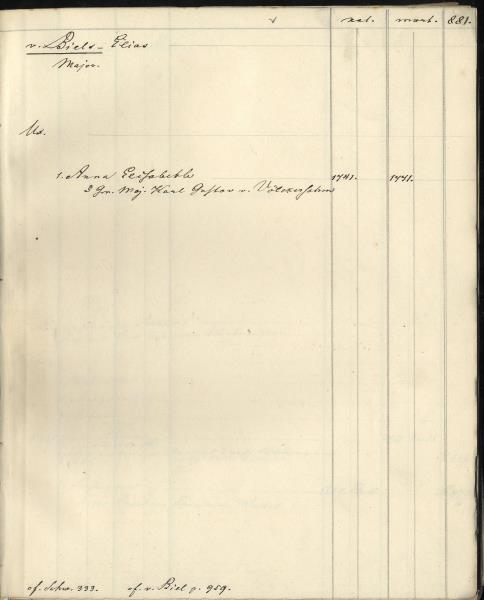 nat. mort. 881.
v. Biels- Elias
Major.
Ux.
1. Anna Elisabeth 1741. 1771.
Gen. Maj. Karl Gustav v. Völckersahm
cf. Schw. 333. cf. v. Biel p. 959.